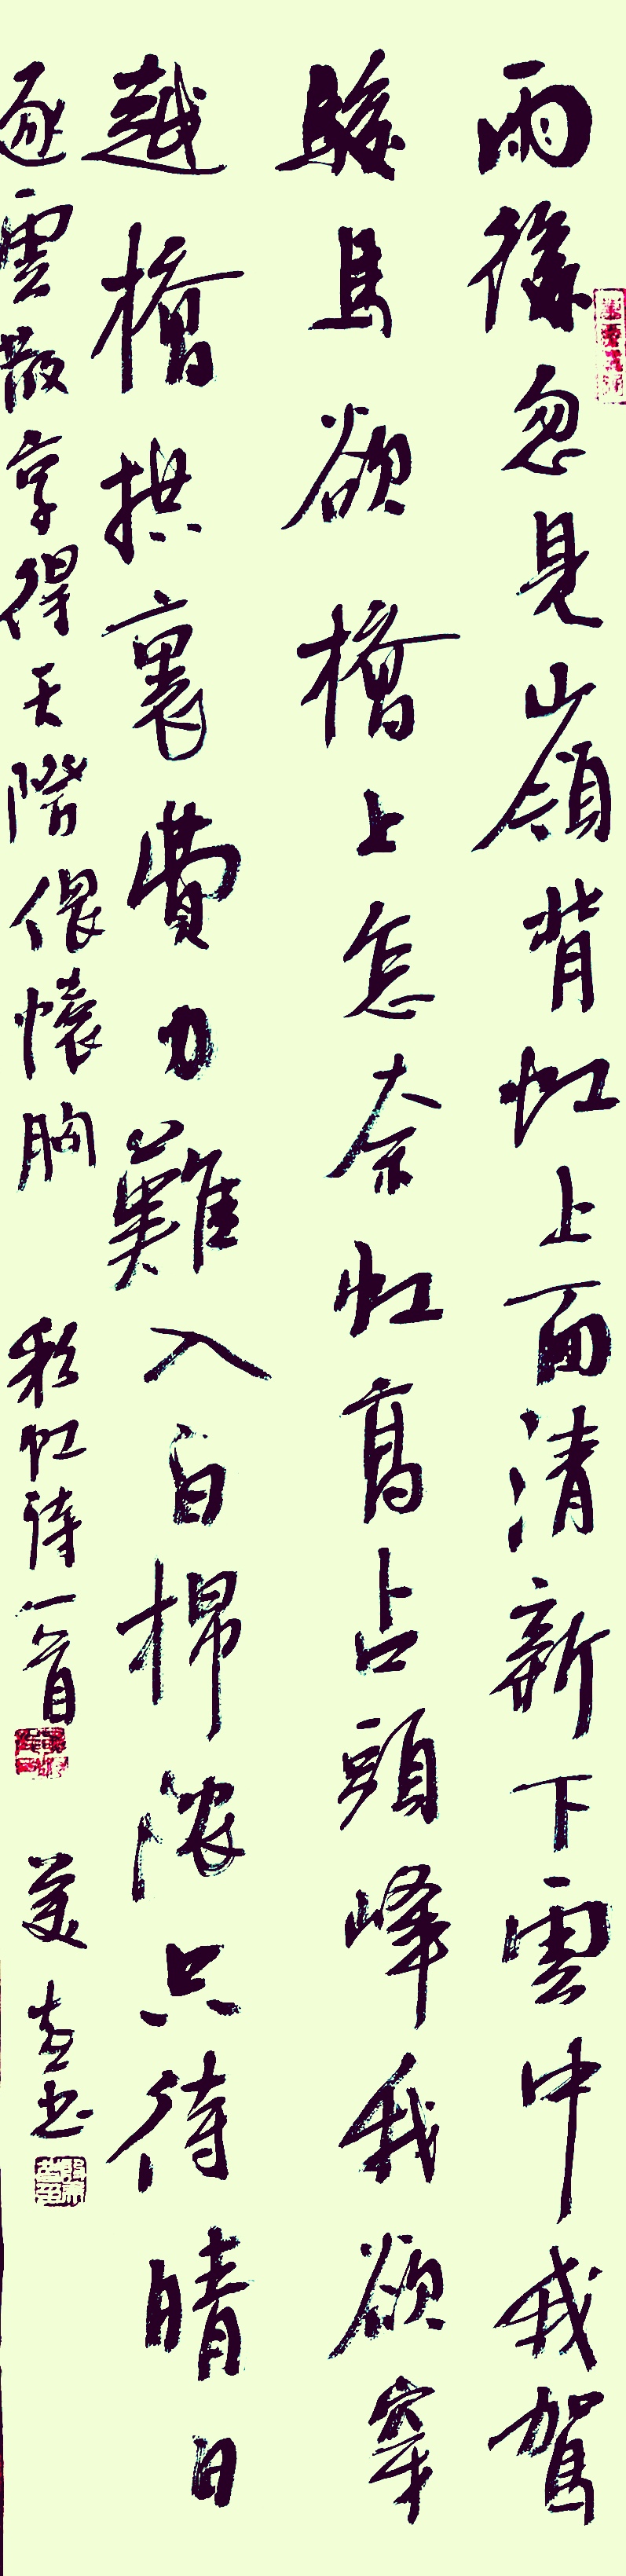 雨後忽見山領背虹上面清新下雲中我駕
駿馬欲橋上怎奈虹高占頭峰我欲穿
越橋拱裏費力難入白棉濃只待晴日
逐雲散享得天階偎懷胸 彩虹詩一首